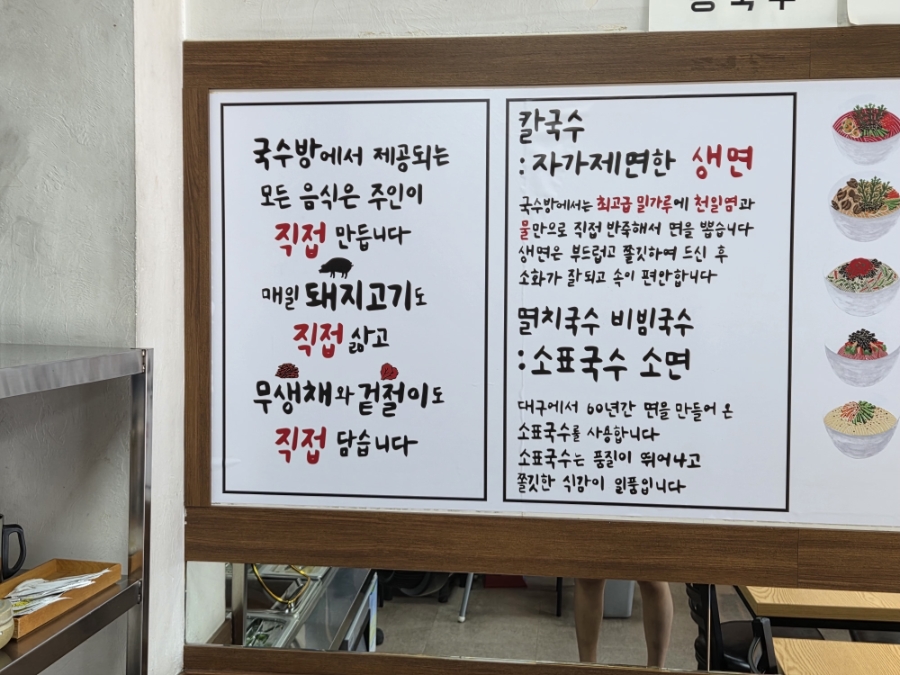 국수방에서 제공되는
모든 음식은 주인이
직접 만듭니다
매일 돼지고기도
직접 삶고
무생채와 겉절이도
직접 담습니다
칼국수
:자가제면한 생면
국수방에서는 최고급 밀가루에 천일염과
물만으로 직접 반죽해서 면을 뽑습니다
생면은 부드럽고 쫄깃하여 드신 후
소화가 잘되고 속이 편안합니다
멸치국수 비빔국수
:소표국수 소면
대구에서 60년간 면을 만들어 온
소표국수를 사용합니다
소표국수는 품질이 뛰어나고
쫄깃한 식감이 일품입니다